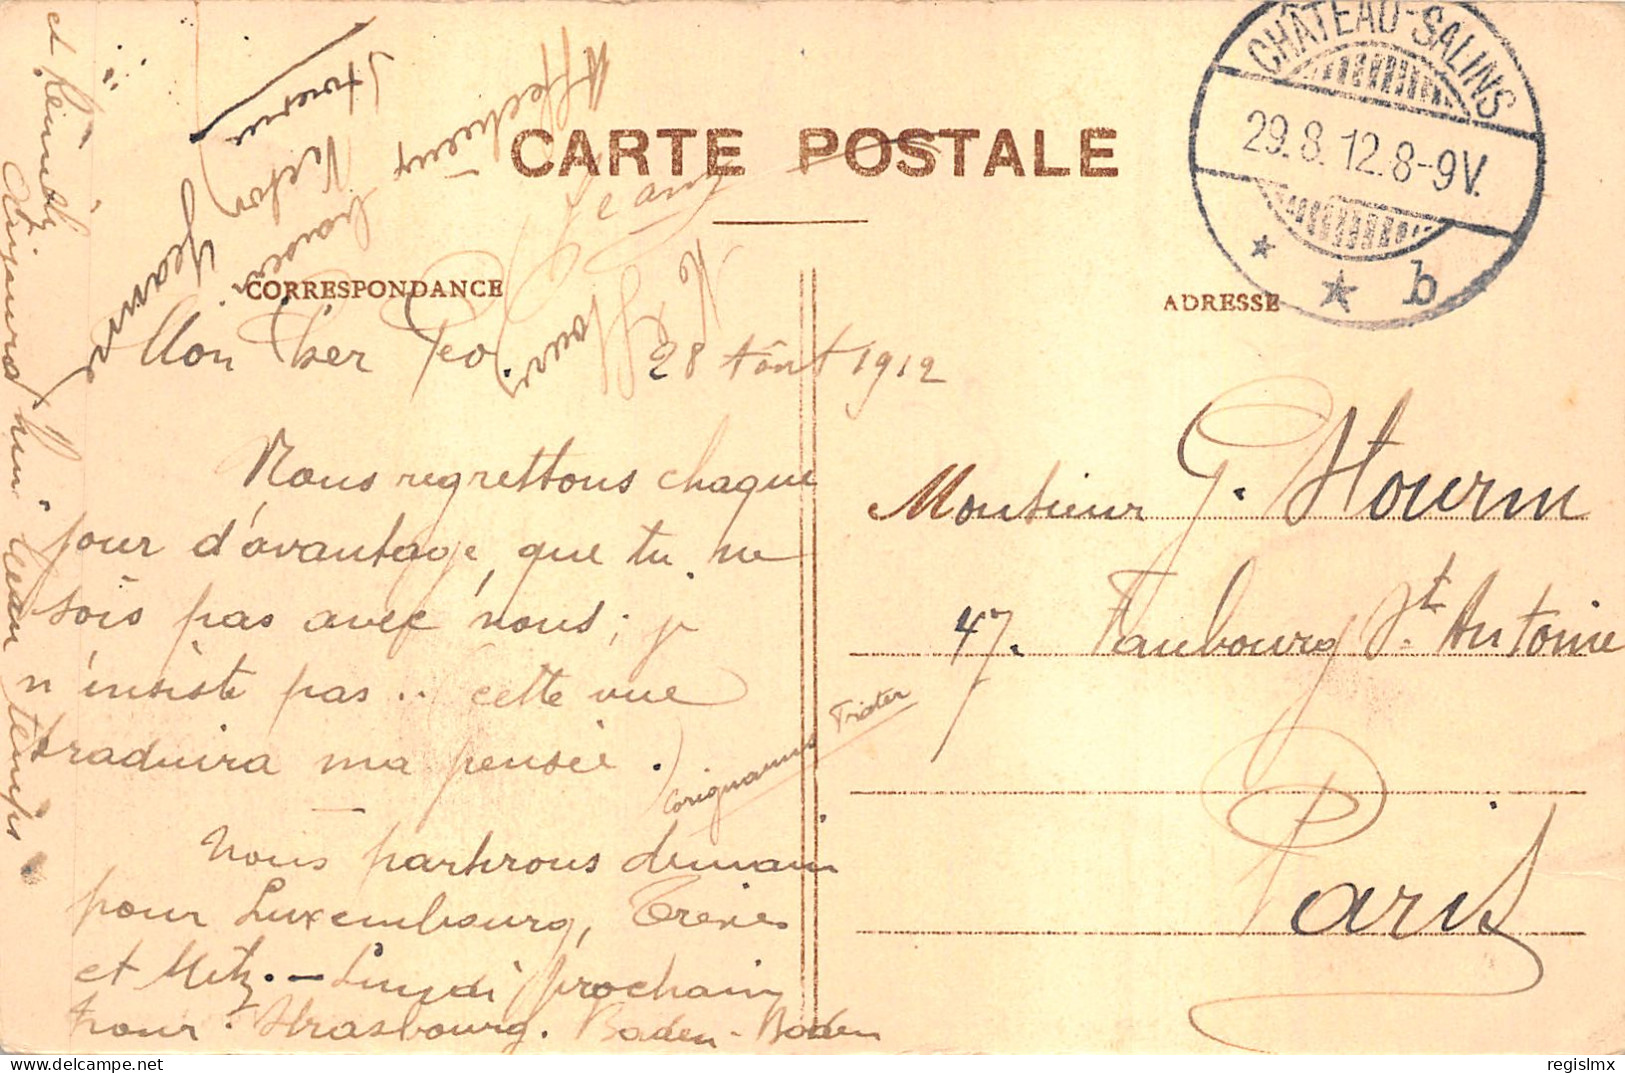 CARTE POSTALE
CHÂTEAU-SALINS
29.8.12.8-9V.
* * b
CORRESPONDANCE
ADRESSE
Mon Cher Geo.
28 Aôut 1912
Nous regrettons chaque
jour d'avantage, que tu ne
sois pas avec nous; je
n'insiste pas.. cette vue
traduira ma pensée.
Nous partirons demain
pour Luxembourg, Trèves
et Metz. - Lundi prochain
pour Strasbourg. Baden-Baden
Aujourd'hui beau temps
Affectueux
Victor
Jeanne
Jeany
Monsieur G. Stourm
47. Faubourg St. Antoine
Paris
regislmx